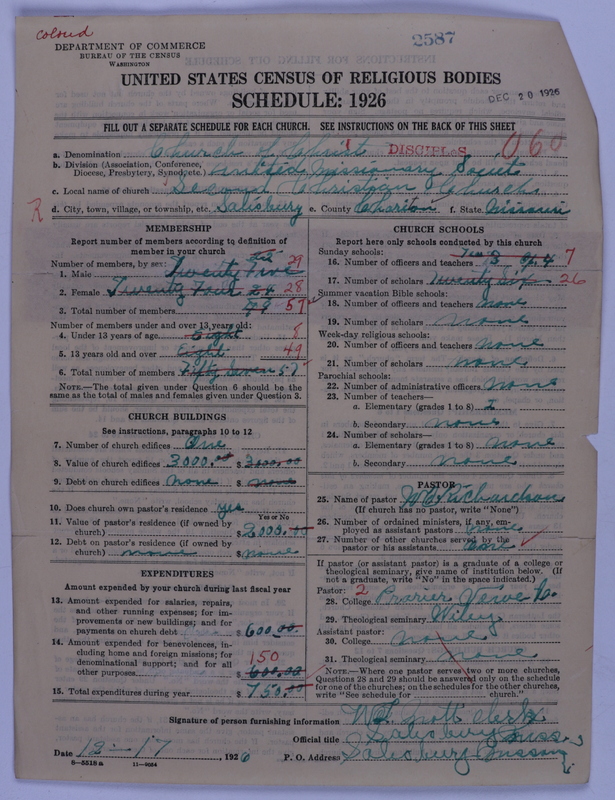 Colord
2587
DEPARTMENT OF COMMERCE
BUREAU OF THE CENSUS
WASHINGTON
UNITED STATES CENSUS OF RELIGIOUS BODIES
SCHEDULE: 1926
DEC 20 1926
FILL OUT A SEPARATE SCHEDULE FOR EACH CHURCH. SEE INSTRUCTIONS ON THE BACK OF THIS SHEET
a. Denomination Church of Christ DISCIPLES 060
b. Division (Association, Conference, Diocese, Presbytery, Synod, etc.) United Missionary
c. Local name of church Second Christian Church
R
d. City, town, village, or township, etc. Salisbury e. County Chariton f. State Missouri
MEMBERSHIP
Report number of members according to definition of member in your church
Number of members, by sex:
1. Male Twenty Five 29
2. Female Twenty Four 24 28
3. Total number of members 57
Number of members under and over 13 years old:
4. Under 13 years of age Eight 8
5. 13 years old and over Eight 49
6. Total number of members Fifty Seven 57
NOTE.—The total given under Question 6 should be the same as the total of males and females given under Question 3.
CHURCH BUILDINGS
See instructions, paragraphs 10 to 12
7. Number of church edifices One
8. Value of church edifices 3000.00 $ 3000.00
9. Debt on church edifices None $ none
10. Does church own pastor's residence? yes
Yes or No
11. Value of pastor's residence (if owned by church) $ 2000.00
12. Debt on pastor's residence (if owned by church) none $ none
EXPENDITURES
Amount expended by your church during last fiscal year
13. Amount expended for salaries, repairs, and other running expenses; for improvements or new buildings; and for payments on church debt $ 600.00
14. Amount expended for benevolences, including home and foreign missions; for denominational support; and for all other purposes 150 $ 600.00
15. Total expenditures during year $ 750.00
CHURCH SCHOOLS
Report here only schools conducted by this church
Sunday schools:
16. Number of officers and teachers 7
17. Number of scholars Twenty Six 26
Summer vacation Bible schools:
18. Number of officers and teachers None
19. Number of scholars None
Week-day religious schools:
20. Number of officers and teachers None
21. Number of scholars None
Parochial schools:
22. Number of administrative officers None
23. Number of teachers—
a. Elementary (grades 1 to 8)
b. Secondary none
24. Number of scholars—
a. Elementary (grades 1 to 8) none
b. Secondary none
PASTOR
25. Name of pastor W E Richardson
(If church has no pastor, write "None")
26. Number of ordained ministers, if any, employed as assistant pastors none
27. Number of other churches served by the pastor or his assistants One
If pastor (or assistant pastor) is a graduate of a college or theological seminary, give name of institution below. (If not a graduate, write "No" in the space indicated.)
Pastor: 2
28. College
29. Theological seminary Wiley
Assistant pastor:
30. College none
31. Theological seminary none
NOTE.—Where one pastor serves two or more churches, Questions 28 and 29 should be answered only on the schedule for one of the churches; on the schedules for the other churches, write "See schedule for church.
Signature of person furnishing information Clerk
Official title Salisbury Miss
Date 12-17, 1926 P. O. Address Salisbury Missouri
8—5518 a 11—9034